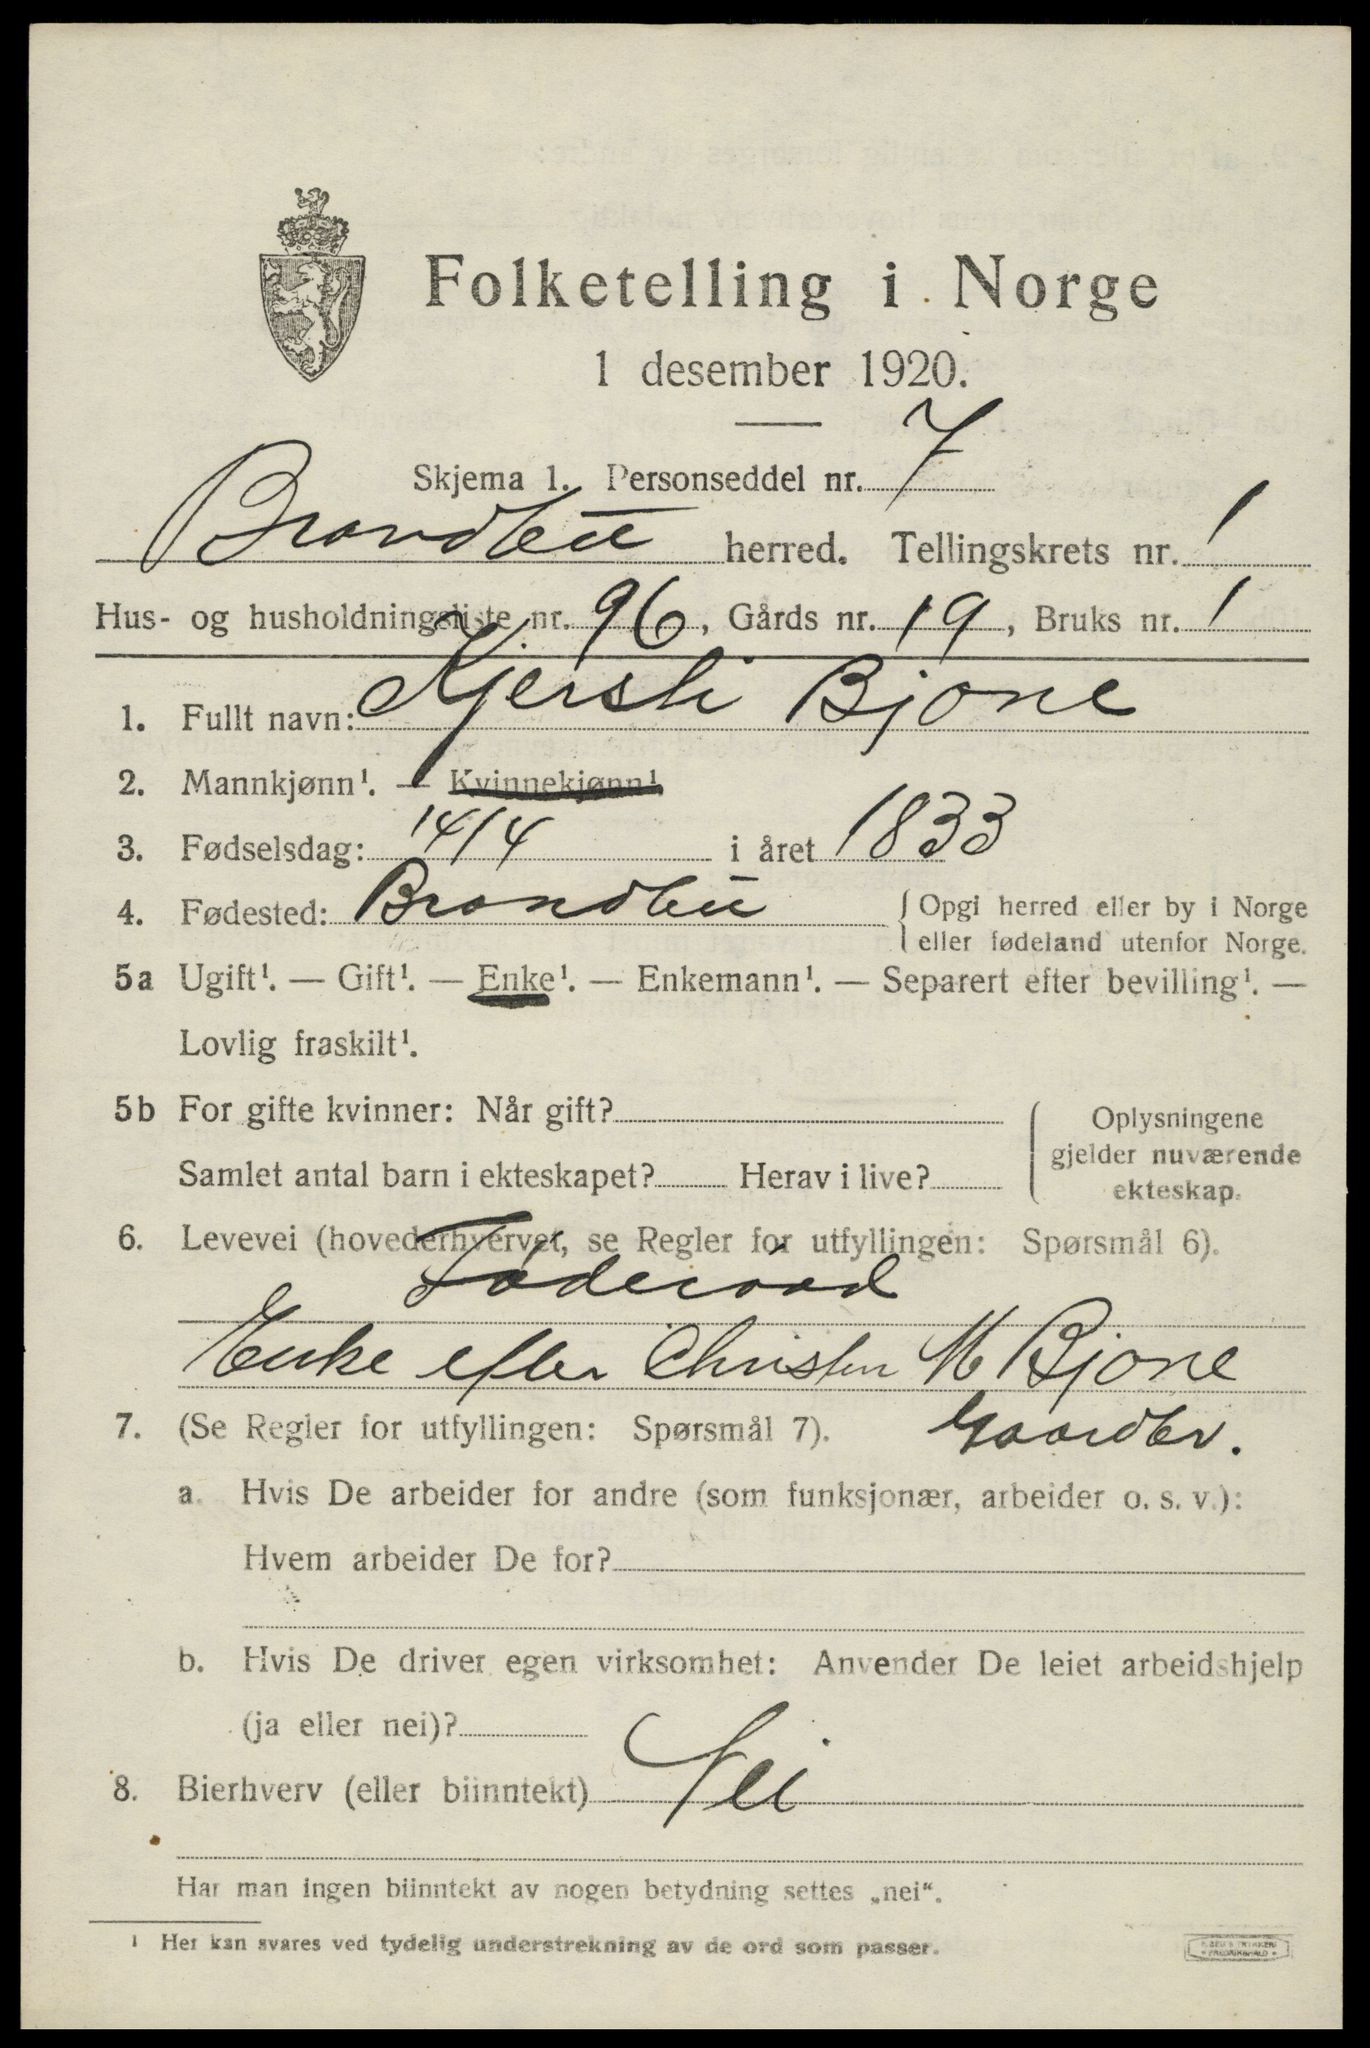 Folketelling i Norge
1 desember 1920.
Skjema 1. Personseddel nr. 7
Brandbu herred. Tellingskrets nr. 1
Hus- og husholdningsliste nr. 96, Gårds nr. 19, Bruks nr. 1
1. Fullt navn: Kjersti Bjone
2. Mannkjønn¹. — Kvinnekjønn¹.
3. Fødselsdag: 14/4 i året 1833
4. Fødested: Brandbu { Opgi herred eller by i Norge
eller fødeland utenfor Norge.
5a Ugift¹. — Gift¹. — Enke¹. — Enkemann¹. — Separert efter bevilling¹. —
Lovlig fraskilt¹.
5b For gifte kvinner: Når gift?
Samlet antal barn i ekteskapet? Herav i live?
Oplysningene
gjelder nuværende
ekteskap.
6. Levevei (hovederhvervet, se Regler for utfyllingen: Spørsmål 6).
Föderaad
Enke efter Christen M Bjone
Gaardbr.
7. (Se Regler for utfyllingen: Spørsmål 7).
a. Hvis De arbeider for andre (som funksjonær, arbeider o. s. v.):
Hvem arbeider De for?
b. Hvis De driver egen virksomhet: Anvender De leiet arbeidshjelp
(ja eller nei)?
8. Bierhverv (eller biinntekt) Nei
Har man ingen biinntekt av nogen betydning settes „nei“.
¹ Her kan svares ved tydelig understrekning av de ord som passer.